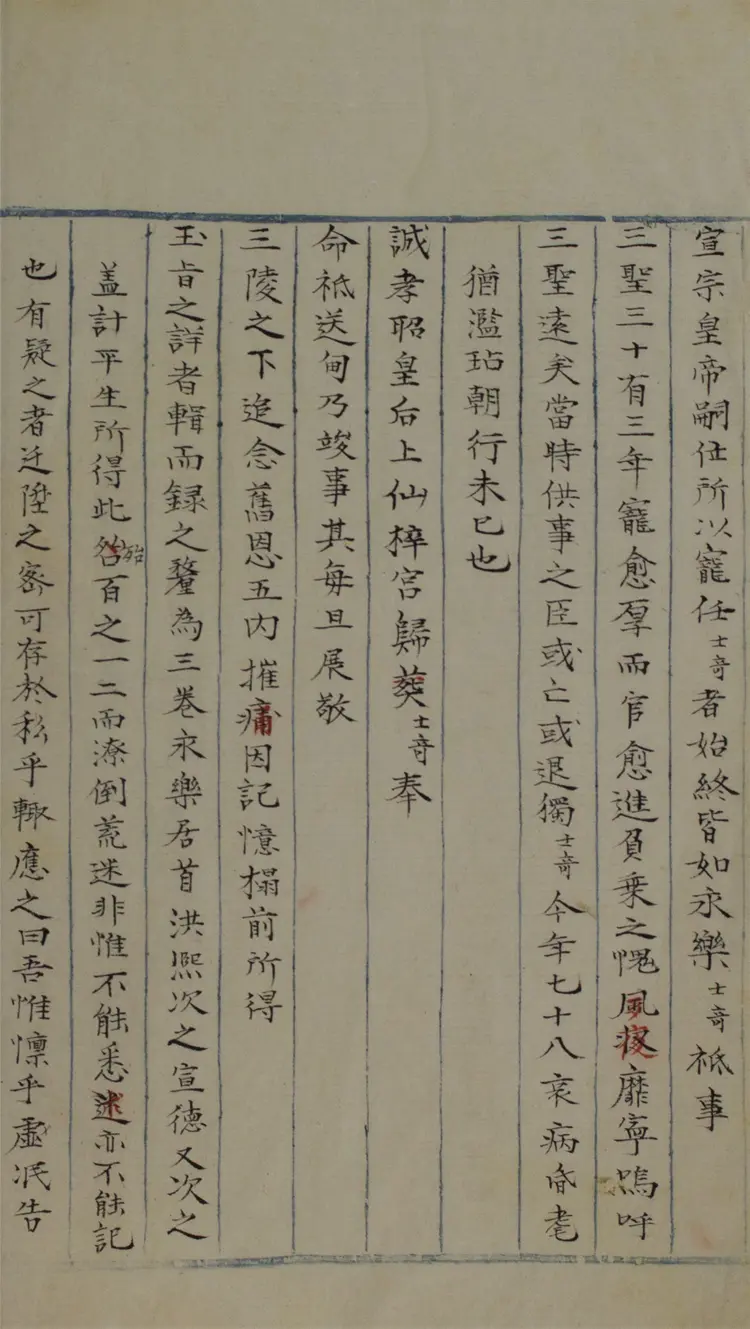 宣宗皇帝嗣位所以寵任士竒者始終皆如永樂士竒祇事
三聖三十有三年寵愈厚而官愈進負乗之愧風夜靡寧嗚呼
三聖遠矣當時供事之臣或亡或退獨士竒今年七十八衰病昏耄
猶濫玷朝行未已也
誠孝昭皇后上仙梓宫歸葬士竒奉
命祇送甸乃竣事其每旦展敬
三陵之下追念舊恩五内摧痛因記憶榻前所得
玉㫖之詳者輯而録之釐為三巻永樂居首洪熙次之宣徳又次之
盖計平生所得此殆百之一二而潦倒荒迷非惟不能悉述亦不能記
也有疑之者迁陞之宻可存於私乎輙應之曰吾惟懔乎虚冺告